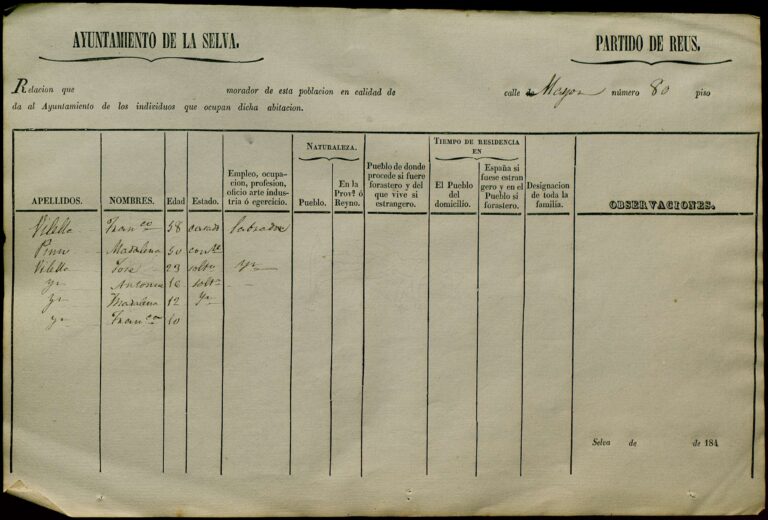 AYUNTAMIENTO DE LA SELVA. PARTIDO DE REUS.
Relacion que morador de esta poblacion en calidad de calle de Mayor número 80 piso
da al Ayuntamiento de los individuos que ocupan dicha abitacion.
APELLIDOS. NOMBRES. Edad Estado. Empleo, ocupacion, profesion, oficio arte industria ó egercicio. NATURALEZA. Pueblo. En la Prov.ª ó Reyno. Pueblo de donde procede si fuere forastero y del que vive si estrangero. TIEMPO DE RESIDENCIA EN El Pueblo del domicilio. España si fuese estrangero y en el Pueblo si forastero. Designacion de toda la familia. OBSERVACIONES.
Vilella Fran.co 58 casado labrador
Madalena 50
Vilella José 23 solt.o Yn
Yn Antonia 16 solt.a
Yn 12 Yn
Yn Fran.co 10
Selva de de 184